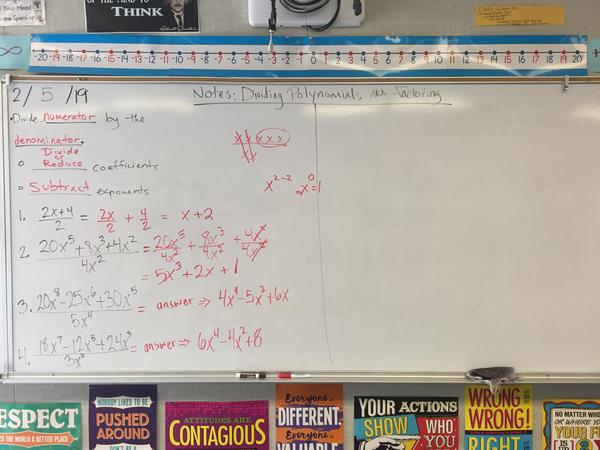 THINK
-20 -19 -18 -17 -16 -15 -14 -13 -12 -11 -10 -9 -8 -7 -6 -5 -4 -3 -2 -1 0 1 2 3 4 5 6 7 8 9 10 11 12 13 14 15 16 17 18 19 20
2/5/19
Notes: Dividing Polynomials AKA Factoring
• Divide numerator by the
denominator.
Divide
or
Reduce coefficients
Subtract exponents
x^{2-2} = x^0 = 1
1. (2x+4)/2 = 2x/2 + 4/2 = x+2
2. (20x^5+8x^3+4x^2)/4x^2 = 20x^5/4x^2 + 8x^3/4x^2 + 4x^2/4x^2
= 5x^3+2x+1
3. (20x^8-25x^6+30x^5)/5x^4 = answer ⇒ 4x^4-5x^2+6x
4. (18x^7-12x^5+24x^3)/3x^3 = answer ⇒ 6x^4-4x^2+8
RESPECT
THE WORLD A BETTER PLACE
NOBODY LIKES TO BE
PUSHED
AROUND
ATTITUDES ARE
CONTAGIOUS
Everyone is
DIFFERENT.
Everyone is
VALUABLE
YOUR ACTIONS
SHOW WHO
YOU
WRONG
WRONG!
RIGHT
NO MATTER WHO
OR WHERE YOU
YOUR FU
IS UP